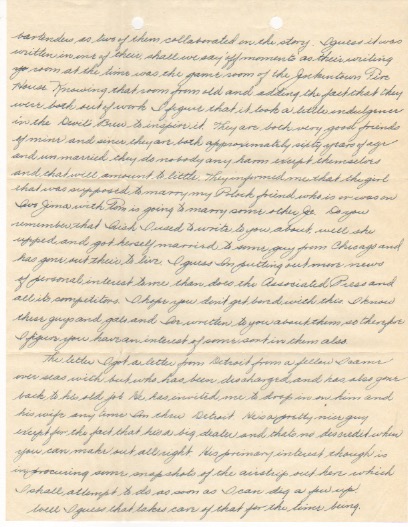 bartenders, as two of them, collaborated on the story. I guess it was
written in one of their, shall we say "off moments" as their writing
room at the time was the game room of the Fire
House. Knowing that room from old and adding the fact that they
were both out of work I figure that it took a little indulgence
in the Devils Brew to inspire it. They are both very good friends
of mine and since they are both approximately sixty years of age
and unmarried they do nobody any harm except themselves
and that will amount to little. They informed me that the girl
that was supposed to marry my Polock friend who is or was on
Iwo Jima with is going to marry some other Joe. Do you
remember that I used to write to you about, well she
upped and got herself married to some guy from Chicago and
has gone out there to live. I guess Im putting out more news
of personal interest to me than does the Associated Press and
all its competitors. I hope you don't get bored with this. I know
these guys and gals and Im written to you about them, so therefor
I figure you have an interest of some sort in them also.
The letter I got a letter from Detroit from a fellow I came
over seas with but who has been discharged and has also gone
back to his old job. He has invited me to drop in on him and
his wife any time Im thru Detroit. He's a pretty nice guy
except for the fact that hes a big dealer and thats no discredit when
you can make out all right. His primary interest though is
in procuring some snapshots of the airstrip out here which
I shall attempt to do as soon as I can dig a few up.
Well I guess that takes care of that for the time being.